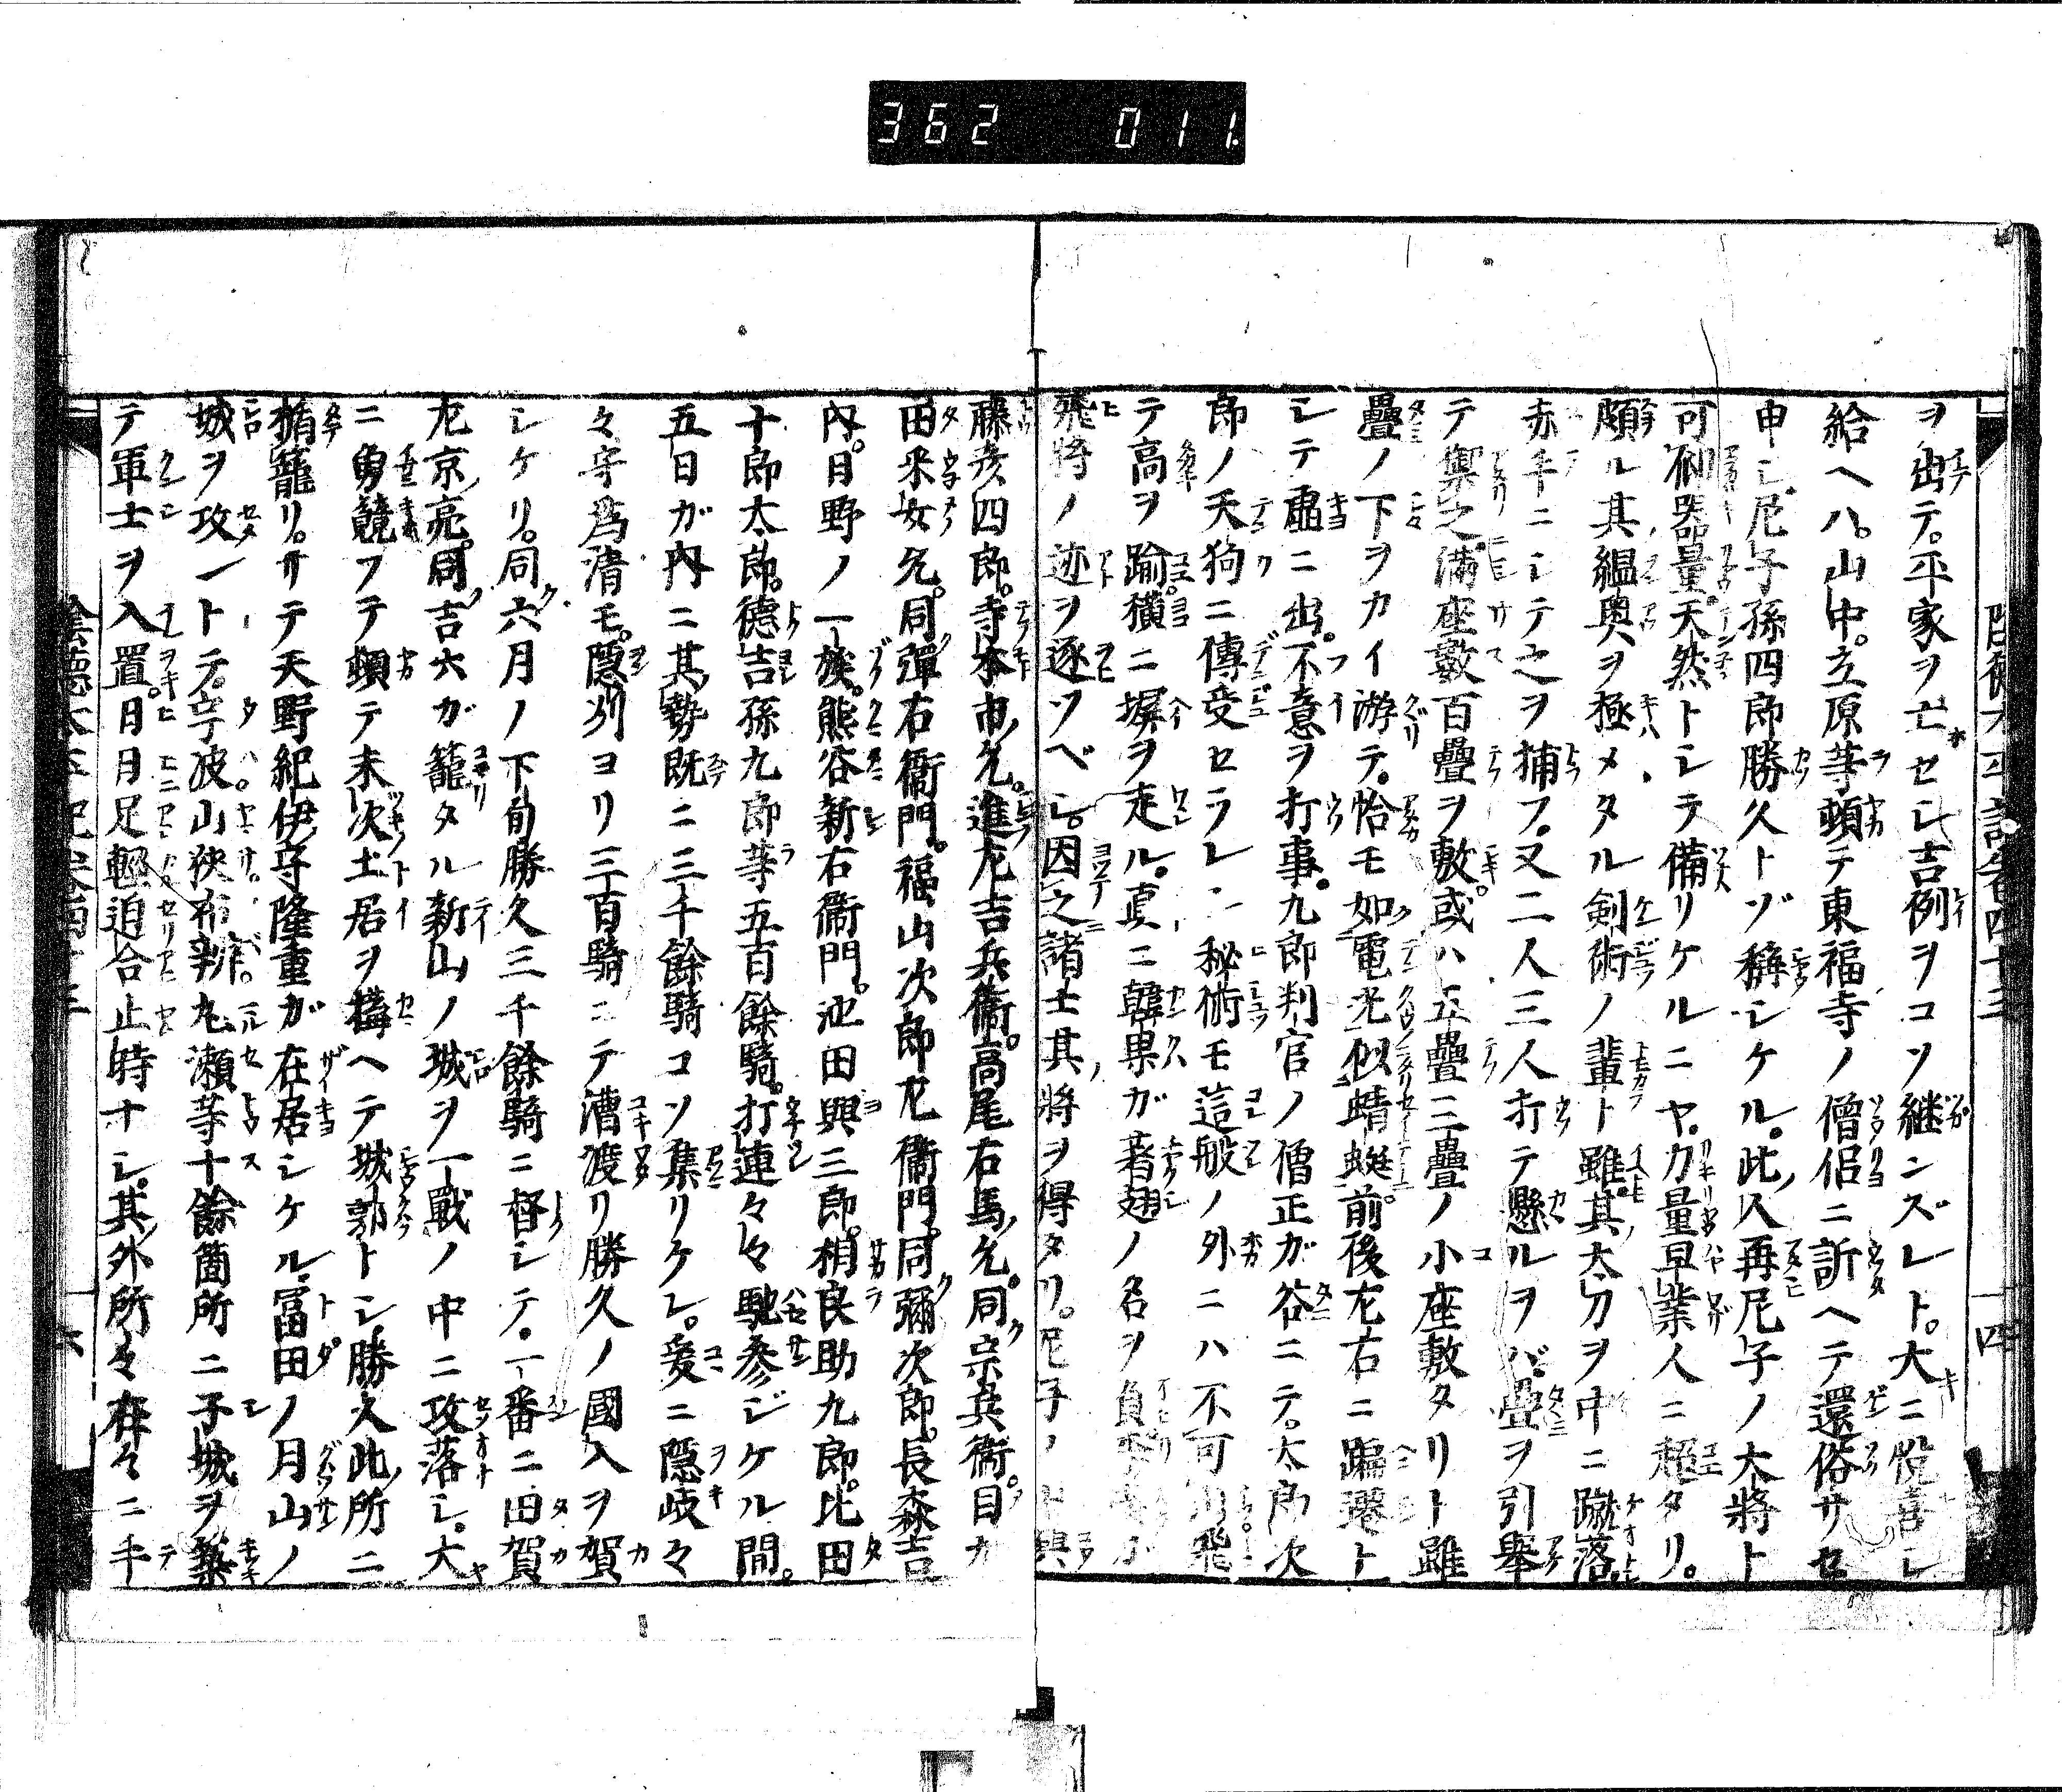 362 011
ヲ出テ。平家ヲ亡セシ吉例ヲコソ継ンズレト。大ニ悦喜シ
給ヘハ。山中。立原等頓テ東福寺ノ僧侶ニ訴ヘテ還俗サセ
申シ。尼子孫四郎勝久トゾ稱シケル。此人再尼子ノ大將ト
可制器量天然トシテ備リケルニヤ。力量早業人ニ超タリ。
頗ル其縕奥ヲ極メタル剣術ノ輩ト雖其太刀ヲ中ニ蹴落
赤手ニシテ之ヲ捕フ。又二人三人打テ懸ルヲバ疊ヲ引擧
テ禦之。満座數百疊ヲ敷。或ハ五疊三疊ノ小座敷タリト雖
疊ノ下ヲカイ游テ。恰モ如電光似蜻蜓。前後左右ニ蹁ト
シテ虚ニ出。不意ヲ打事。九郎判官ノ僧正ガ谷ニテ。太郎次
郎ノ天狗ニ傳受セラレシ秘術モ這般ノ外ニハ不可飛
テ高ヲ踰。横ニ塀ヲ走ル。真ニ韓果ガ著翅ノ名ヲ負
飛將ノ迹ヲ逐ツベシ。因之諸士其將ヲ得タリ。尼子ノ興
藤彦四郎。寺本市允。進左吉兵衛。高尾右馬允。同宗兵衛。目カ
田采女允。同彈右衛門。福山次郎左衛門。同彌次郎。長森吉
内。日野ノ一族。熊谷新右衛門。池田與三郎。相良助九郎。比田
十郎太郎。德吉孫九郎等五百餘騎。打連々々馳參ジケル間。
五日ガ内ニ其勢既ニ三千餘騎コソ集リケレ。爰ニ隠岐々
々守為清モ。隠刕ヨリ三百騎ニテ漕渡リ勝久ノ國入ヲ賀
シケリ。同六月ノ下旬勝久三千餘騎ニ督シテ。一番ニ田賀
左京亮。同吉六ガ籠タル新山ノ城ヲ一戰ノ中ニ攻落シ。大
ニ勇競フテ頓テ末次土居ヲ構ヘテ城郭トシ勝久此所ニ
楯籠リ。サテ天野紀伊守隆重ガ在居シケル。冨田ノ月山ノ
城ヲ攻ントテ。宇波山狹布辨丸瀬等十餘箇所ニ子城ヲ築
テ軍士ヲ入置。日日足輕迫合止時ナシ。其外所々在々ニ手
陰德太平記卷四十三
四